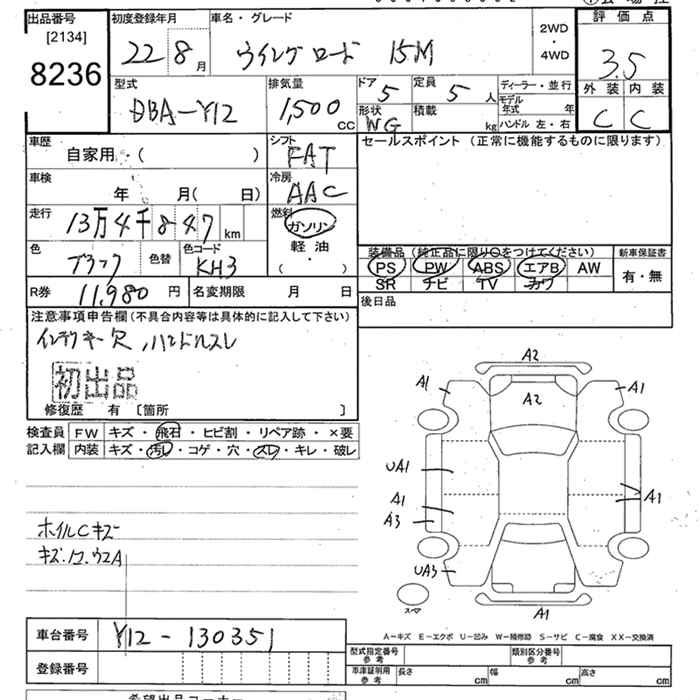 出品番号 初度登録年月 車名・グレード 2WD ・ 4WD 評価点
[2134]
8236 22 8月 ウイングロード 15M 3.5
型式 排気量 ドア 定員 ディーラー・並行 外装 内装
DBA-Y12 1,500 CC 5 5人 モデル年式 年 C C
形状 積載 ハンドル 左・右
WG kg
車歴 シフト セールスポイント(正常に機能するものに限ります)
自家用・( ) FAT
車検 冷房
年 月( 日) AAC
走行 燃料
13万4千847 km ガソリン
軽油
( ・ )
色 色替 色コード 装備品(純正品に限り○をつけてください) 新車保証書
ブラック KH3 PS PW ABS エアB AW 有・無
SR ナビ TV カワ
R券 11,980円 名変期限 月 日 後日品
注意事項申告欄(不具合内容等は具体的に記入して下さい)
インテリキー穴,ハンドルスレ
初出品
修復歴 有 [箇所 ]
検査員 FW キズ・飛石・ヒビ割・リペア跡・×要
記入欄 内装 キズ・汚レ・コゲ・穴・スレ・キレ・破レ
ホイルCキズ
A2
A1 A2 A1
UA1
A1 A1
A3
UA3
スペア A1
A-キズ E-エクボ U-凹み W-補修跡 S-サビ C-腐食 XX-交換済
車台番号 Y12-130351
登録番号
型式指定番号 参考 類別区分番号 参考
車庫証明用 参考 長さ cm 幅 cm 高さ cm
希望出品コーナー